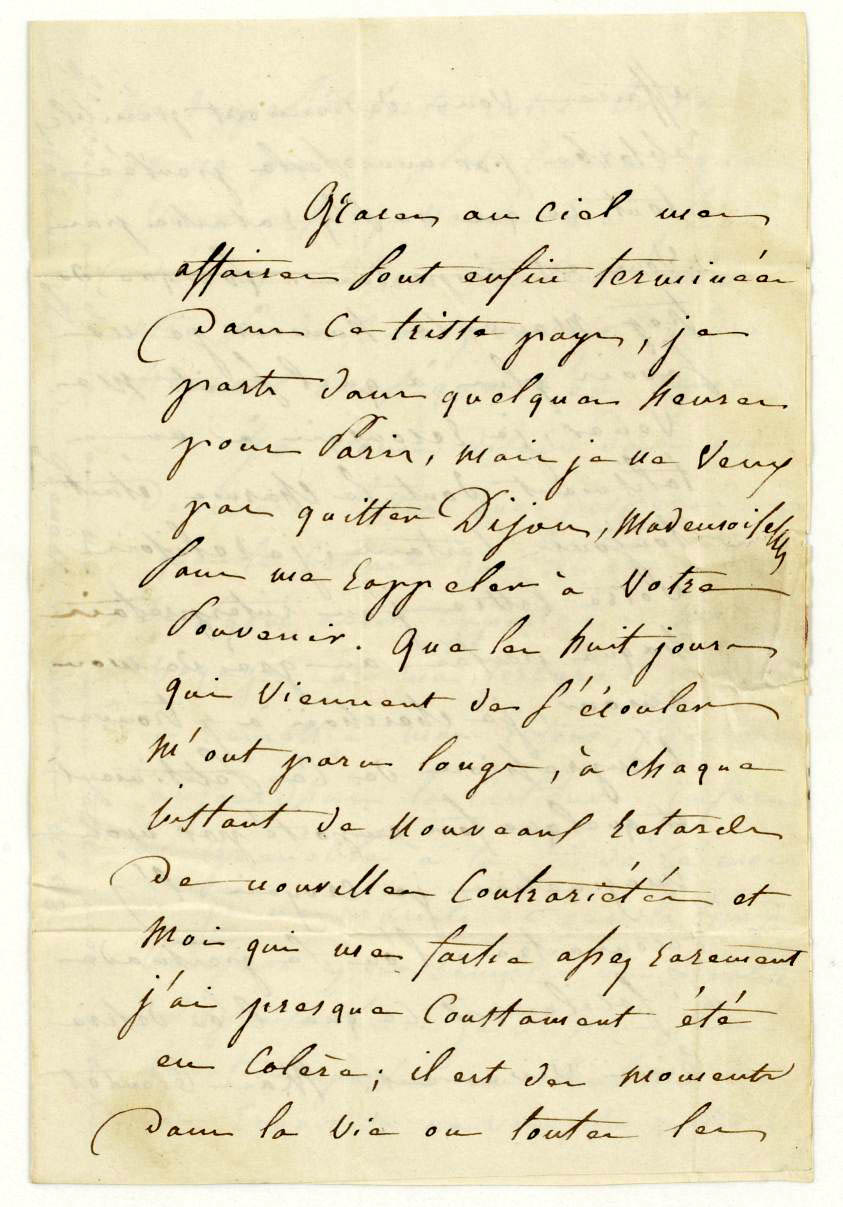 Graces au ciel mes
affaires sont enfin terminées
dans ce triste pays, je
parts dans quelques heures
pour Paris, mais je ne veux
pas quitter Dijon, Mademoiselle,
sans me rappeler à votre
souvenir. Que les huit jours
qui viennent de s'écouler
m'ont paru longs, à chaque
instant de nouveaux retards
de nouvelles contrariétés et
moi qui me fache assez rarement
j'ai presque constament été
en colère; il est des moments
dans la vie ou toutes les